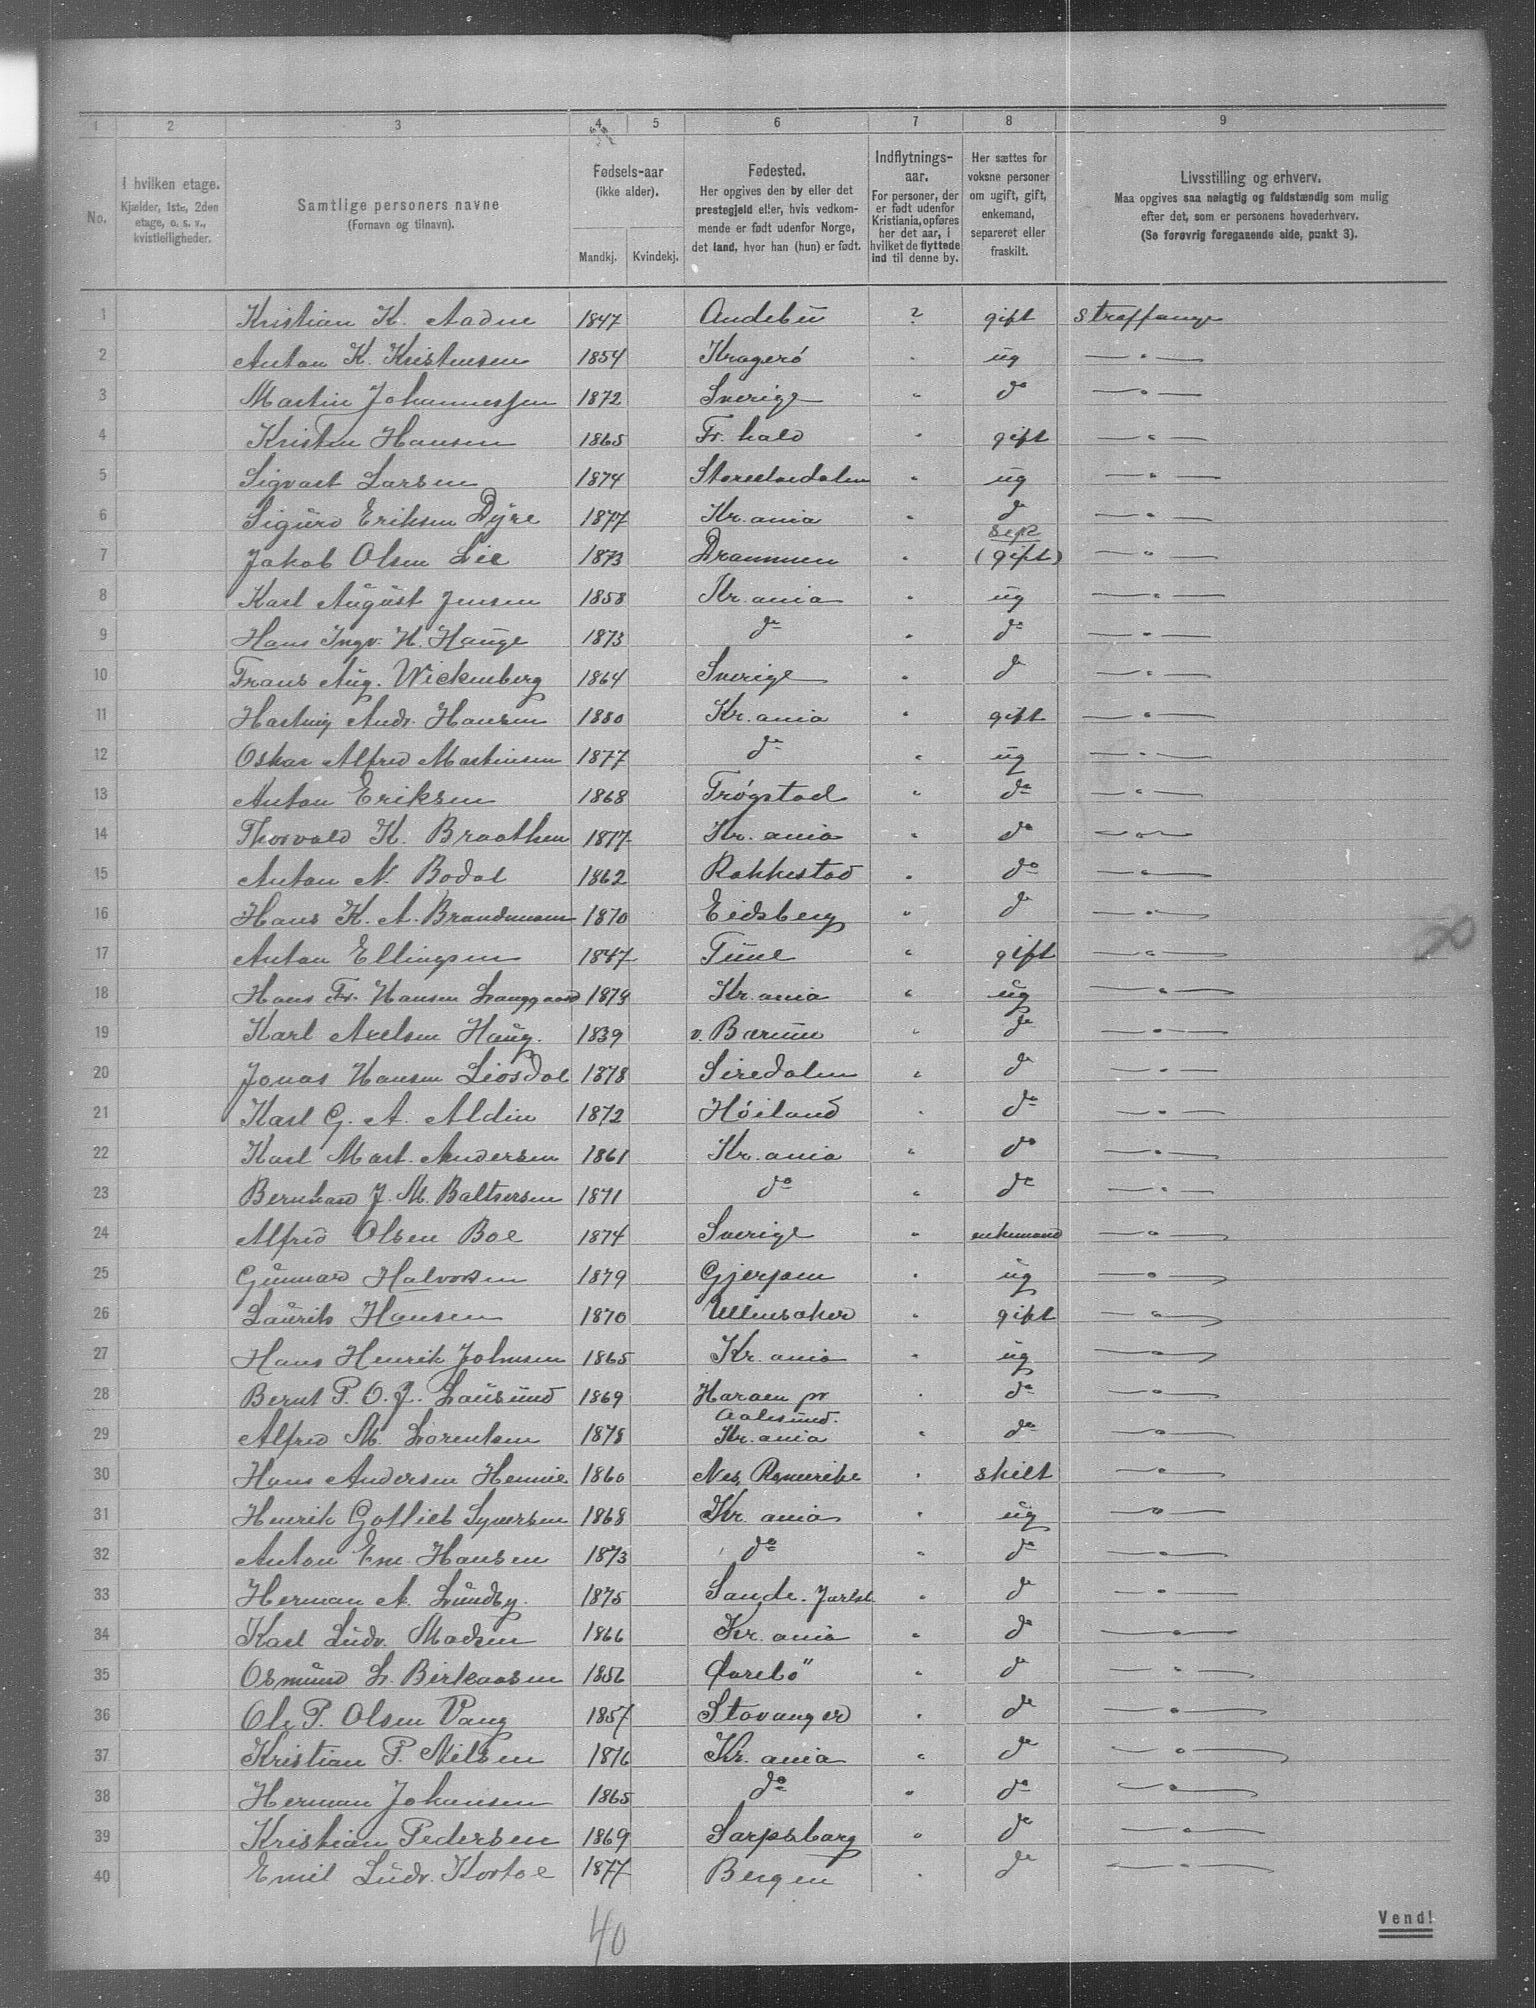 1 2 3 4 5 6 7 8 9
No.
I hvilken etage.
Kjælder, 1ste, 2den
etage, o. s. v.,
kvistleiligheder.
Samtlige personers navne
(Fornavn og tilnavn).
Fødsels-aar
(ikke alder).
Mandkj. Kvindekj.
Fødested.
Her opgives den by eller det
prestegjeld eller, hvis vedkom-
mende er født udenfor Norge,
det land, hvor han (hun) er født.
Indflytnings-
aar.
For personer, der
er født udenfor
Kristiania, opføres
her det aar, i
hvilket de flyttede
ind til denne by.
Her sættes for
voksne personer
om ugift, gift,
enkemand,
separeret eller
fraskilt.
Livsstilling og erhverv.
Maa opgives saa nøiagtig og fuldstændig som mulig
efter det, som er personens hovederhverv.
(Se forøvrig foregaaende side, punkt 3).
1 Kristian K. Aadne 1847 Andebu ? gift straffange
2 Anton K. Kristensen 1854 Kragerö " ug — " —
3 Martin Johannessen 1872 Sverige " do — " —
4 Kristen Hansen 1865 Fr. hald " gift — " —
5 Sigvart Larsen 1874 Storelvedalen " ug — " —
6 Sigurd Eriksen Dyre 1877 Kr. ania " do — " —
7 Jakob Olsen Lie 1873 Drammen " sep (gift) — " —
8 Karl August Jensen 1858 Kr. ania " ug — " —
9 Hans Ingv. H. Hauge 1873 do " do — " —
10 Frans Aug. Wickenberg 1864 Sverige " do — " —
11 Hartvig Andr. Hansen 1880 Kr. ania " gift — " —
12 Oskar Alfred Martinsen 1877 do " ug — " —
13 Anton Eriksen 1868 Trøgstad " do — " —
14 Thorvald K. Braathen 1877 Kr. ania " do — " —
15 Anton N. Bodal 1862 Rakkestad " do — " —
16 Hans K. A. Brandmoen 1870 Eidsberg " do — " —
17 Anton Ellingsen 1847 Tune " gift — " —
18 Hans Fr. Hansen Langgaard 1879 Kr. ania " ug — " —
19 Karl Axelsen Haug. 1839 v. Bærum " do — " —
20 Jonas Hansen Liosdal 1878 Siredalen " do — " —
21 Karl G. A. Aldin 1872 Høiland " do — " —
22 Karl Mart. Andersen 1861 Kr. ania " do — " —
23 Bernhard J. M. Baltsersen 1871 do " do — " —
24 Alfred Olsen Boe 1874 Sverige " enkemand — " —
25 Gunnard Halvorsen 1879 Gjerpen " ug — " —
26 Laurits Hansen 1870 Ullensaker " gift — " —
27 Hans Henrik Johnsen 1865 Kr. ania " ug — " —
28 Bernt P. O. J. Lausund 1869 Haraen pr " do — " —
Aalesund.
29 Alfred M. Lorentsen 1878 Kr. ania " do — " —
30 Hans Andersen Hennie 1860 Nes, Romerike " skilt — " —
31 Henrik Gotlieb Syversen 1868 Kr. ania " ug — " —
32 Anton Em. Hansen 1873 do " do — " —
33 Herman A. Lundby. 1875 Sande. Jarlsb. " do — " —
34 Karl Ludv. Madsen 1866 Kr. ania " do — " —
35 Osmund L. Birkaasen 1856 " do — " —
36 Ole P. Olsen Vang 1857 Stavanger " do — " —
37 Kristian P. Nilsen 1876 Kr. ania " do — " —
38 Herman Johansen 1865 do " do — " —
39 Kristian Pedersen 1869 Sarpsborg " do — " —
40 Emil Ludv. 1877 Bergen " do — " —
40
20
Vend!